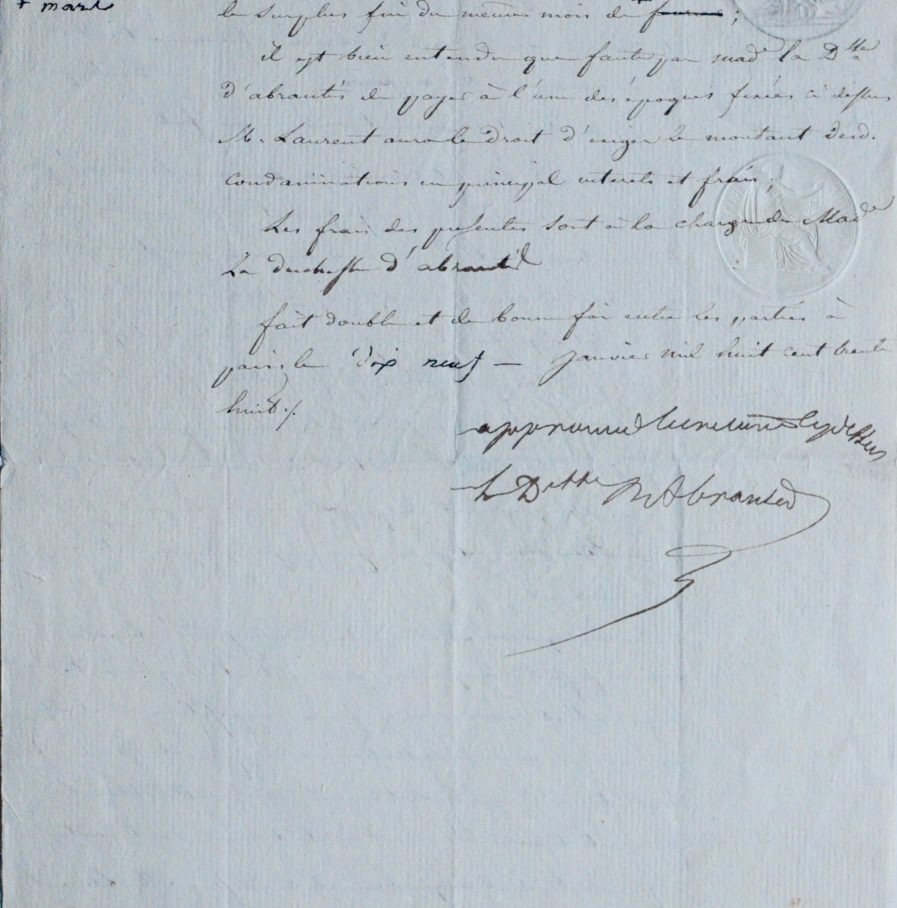 + mars
le surplus fin du même mois de fourni ;
il est bien entendu que faute par mad.e la D.sse
d'abrantès de payer à l'une des époques fixées ci dessus
M. Laurent aura le droit d'exiger le montant desd.
condamnations en principal interets et frais ;
Les frais des présentes sont à la charge de Mad.e
La duchesse d'abrantès
fait double et de bonne foi entre les parties à
paris le dix neuf — janvier mil huit cent trente
huit ./.
approuvé l'ecriture cy dessus
La D.esse D'Abrantes